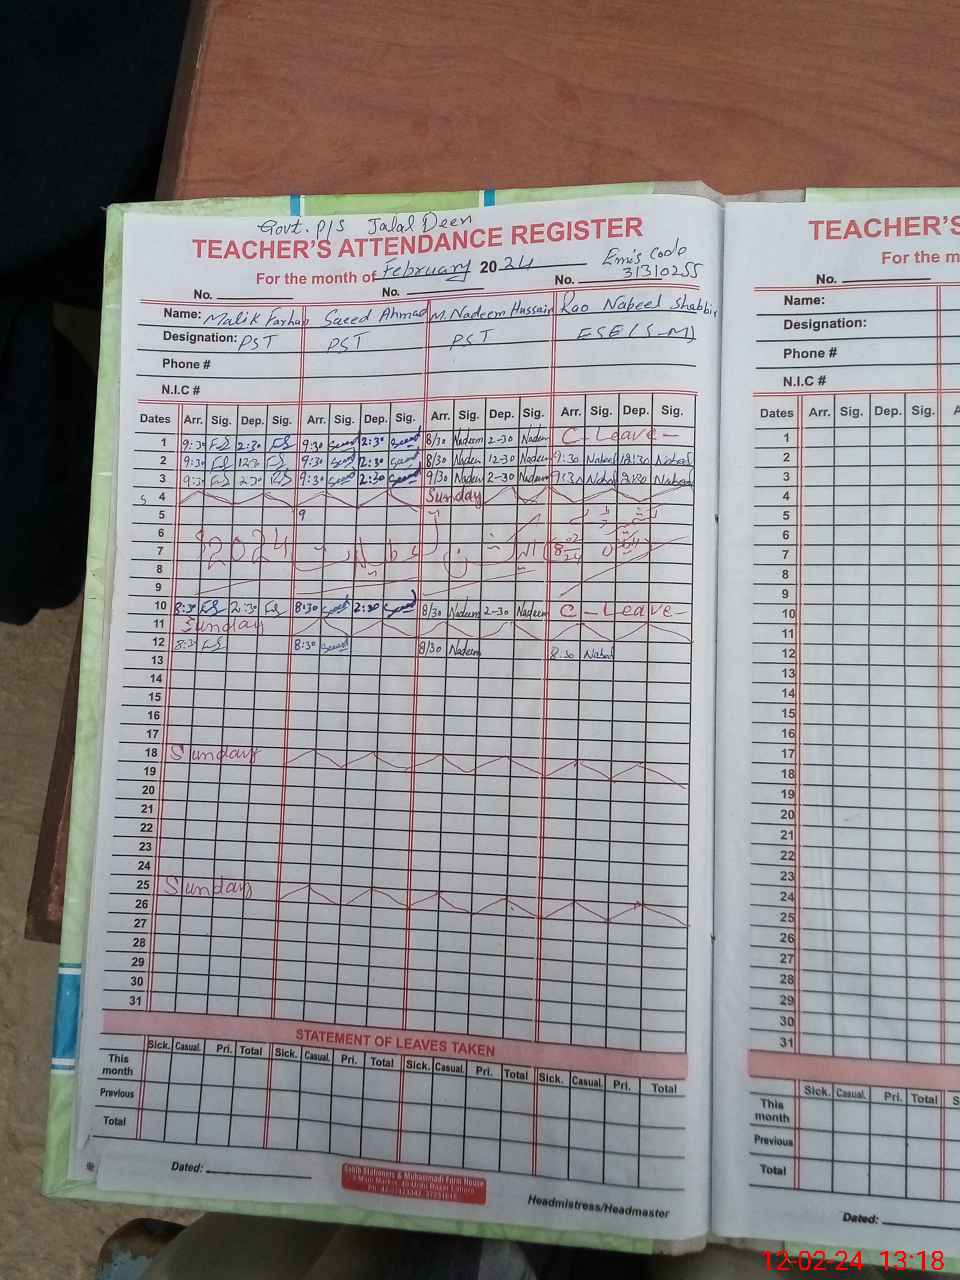 Govt. P/S Jalal Deen
TEACHER'S ATTENDANCE REGISTER
For the month of February 2024
Emis Code
31310255
No. No. No.
Name: Malik Farhan Saeed Ahmad M. Nadeem Hussain Rao Nabeel Shabbir
Designation: PST PST PST ESE (S-M)
Phone #
N.I.C #
Dates Arr. Sig. Dep. Sig. Arr. Sig. Dep. Sig. Arr. Sig. Dep. Sig. Arr. Sig. Dep. Sig.
1 9:30 2:30 9:30 Saeed 2:30 Saeed 8/30 Nadeem 2-30 Nadeem C-Leave-
2 9:30 12:30 9:30 Saeed 2:30 Saeed 8/30 Nadeem 12-30 Nadeem 9:30 Nabeel 12:30 Nabeel
3 9:30 2:30 9:30 Saeed 2:30 Saeed 9/30 Nadeem 2-30 Nadeem 9:30 Nabeel 2:30 Nabeel
4 Sunday
5 9
6
7 2024
8
9
10 8:30 2:30 8:30 Saeed 2:30 Saeed 8/30 Nadeem 2-30 Nadeem C-Leave-
11 Sunday
12 8:30 8:30 Saeed 8/30 Nadeem 8:30 Nabeel
13
14
15
16
17
18 Sunday
19
20
21
22
23
24
25 Sunday
26
27
28
29
30
31
STATEMENT OF LEAVES TAKEN
Sick. Casual. Pri. Total Sick. Casual. Pri. Total Sick. Casual. Pri. Total Sick. Casual. Pri. Total
This month
Previous
Total
Dated:
Headmistress/Headmaster
TEACHER'S
For the m
No.
Name:
Designation:
Phone #
N.I.C #
Dates Arr. Sig. Dep. Sig. A
1
2
3
4
5
6
7
8
9
10
11
12
13
14
15
16
17
18
19
20
21
22
23
24
25
26
27
28
29
30
31
Sick. Casual. Pri. Total S
This month
Previous
Total
Dated:
12-02-24 13:18